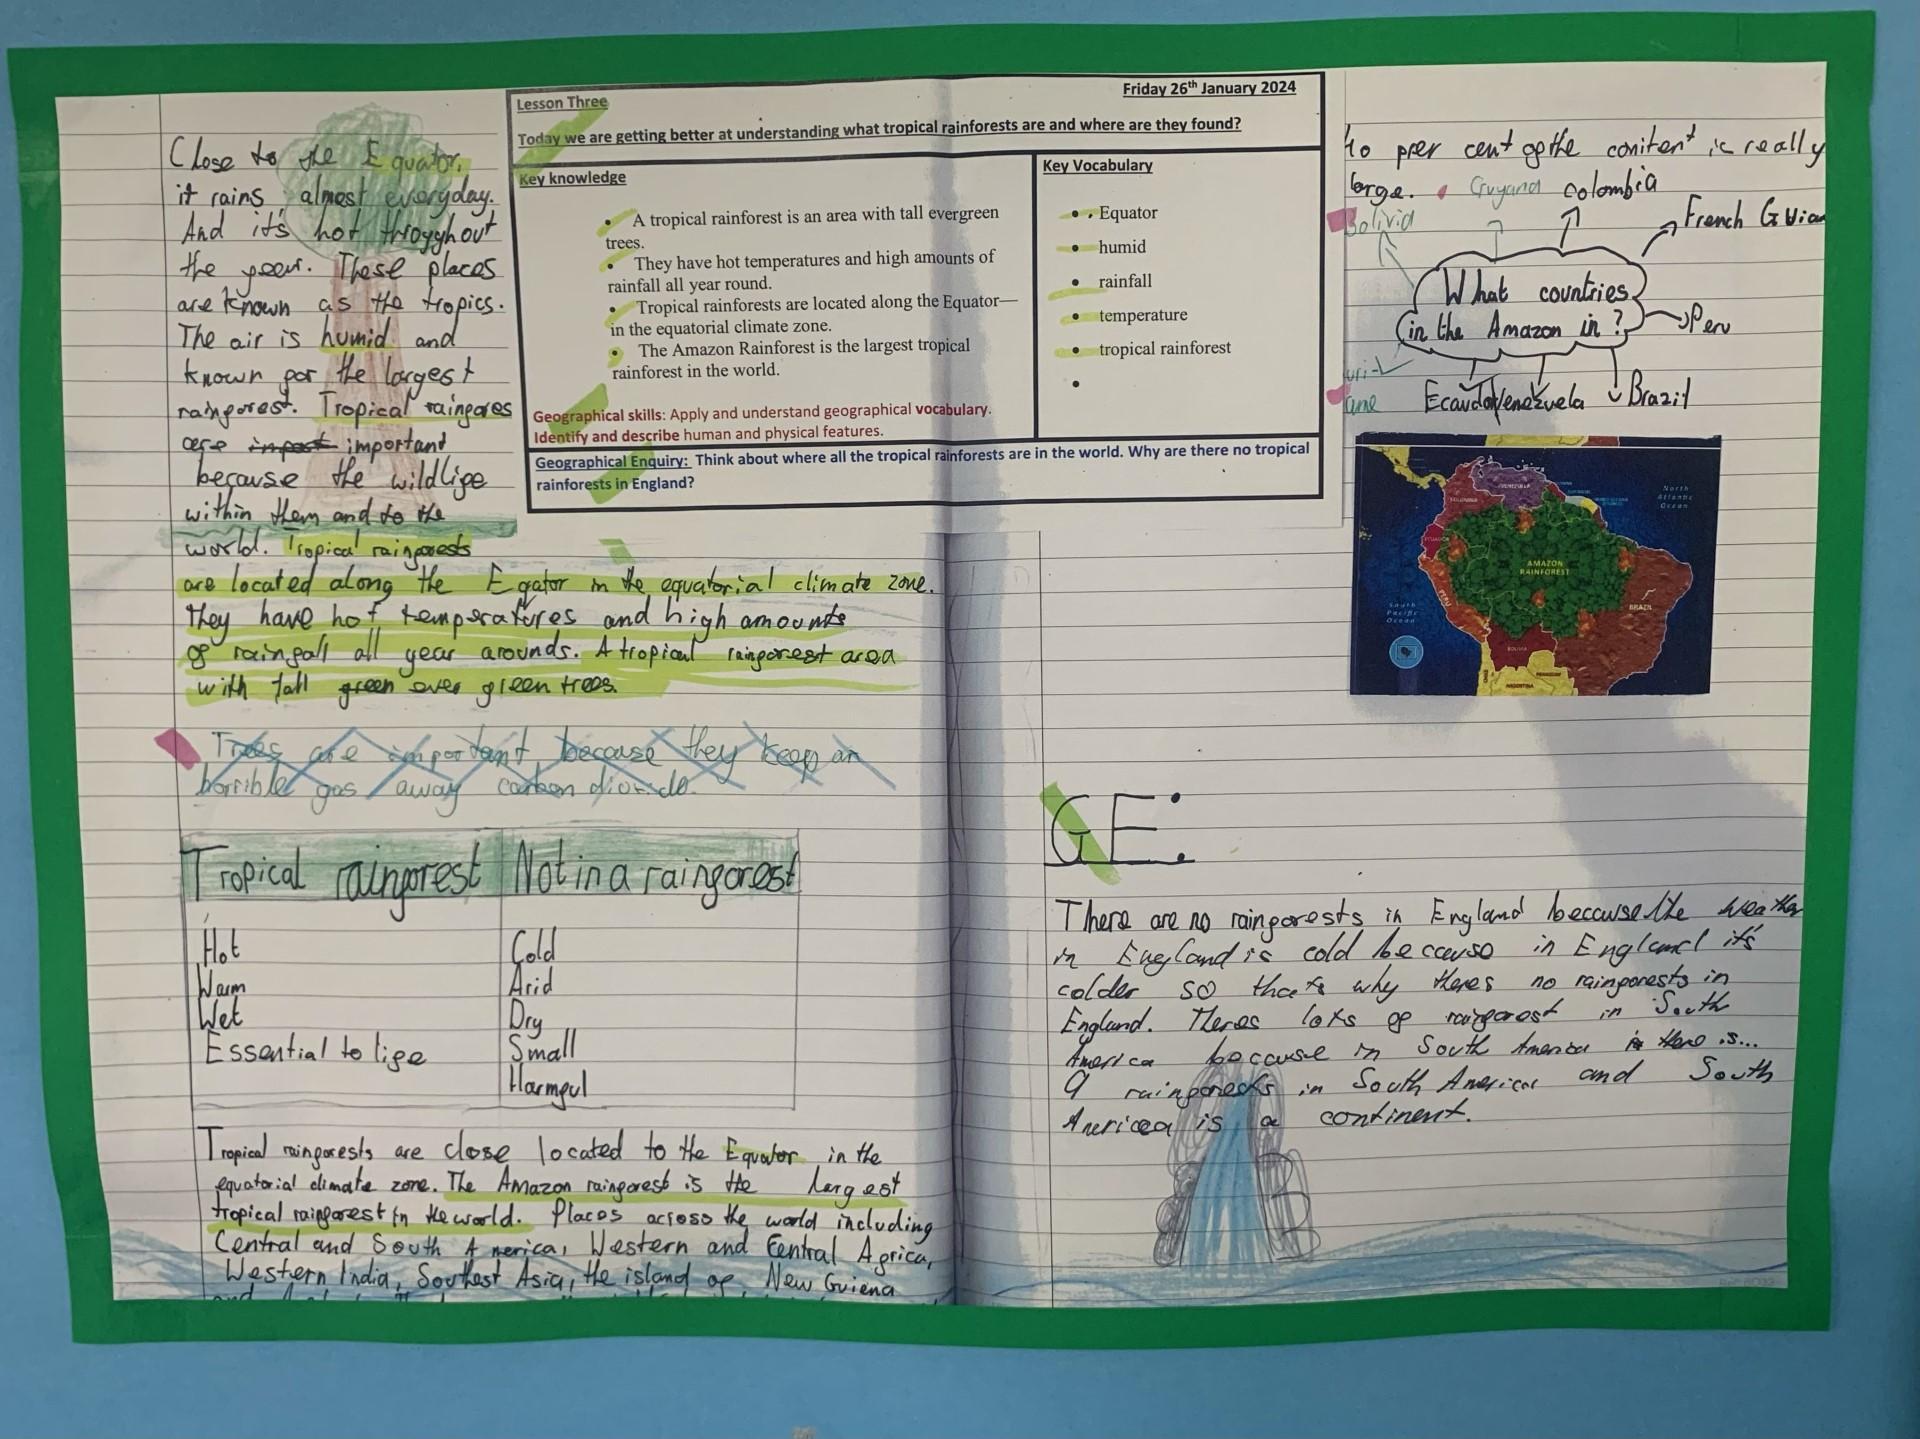 Close to the Equator,
it rains, almost everyday.
And it's hot throyghout
the year. These places
are known as the tropics.
The air is humid and
known for the largest
rainforest. Tropical rainfores
are impost important
because the wildlife
within them and to the
world. Tropical rainforests
are located along the Eqator in the equatorial climate zone.
They have hot temperatures and high amounts
of rainfall all year arounds. A tropical rainforest area
with tall green ever green trees.
Trees are important because they keep an
horrible gas away carbon
Tropical rainforest Not in a rainforest
Hot Cold
Warm Arid
Wet Dry
Essential to life Small
Harmful
Tropical rainforests are close located to the Equator in the
equatorial climate zone. The Amazon rainforest is the largest
tropical rainforest in the world. Places across the world including
Central and South America, Western and Central Africa,
Western India, Southest Asia, the island of New Guiena
Lesson Three
Friday 26th January 2024
Today we are getting better at understanding what tropical rainforests are and where are they found?
Key knowledge
• A tropical rainforest is an area with tall evergreen
trees.
• They have hot temperatures and high amounts of
rainfall all year round.
• Tropical rainforests are located along the Equator—
in the equatorial climate zone.
• The Amazon Rainforest is the largest tropical
rainforest in the world.
Geographical skills: Apply and understand geographical vocabulary.
Identify and describe human and physical features.
Key Vocabulary
• Equator
• humid
• rainfall
• temperature
• tropical rainforest
•
Geographical Enquiry: Think about where all the tropical rainforests are in the world. Why are there no tropical
rainforests in England?
40 prer cent of the conitent is really
large. Guyana Colombia
Bolivia French Guian
What countries
in the Amazon in? Peru
uri-
ame Ecaudor Venezuela Brazil
North
Atlantic
Ocean
VENEZUELA
COLOMBIA
ECUADOR
AMAZON
RAINFOREST
PERU
BRAZIL
South
Pacific
Ocean
BOLIVIA
PARAGUAY
ARGENTINA
GE:
There are no rainforests in England because the weather
in England is cold because in England it's
colder so thats why theres no rainforests in
England. Theres lots of rainforest in South
America because in South America is there is...
9 rainforests in South America and South
America is a continent.